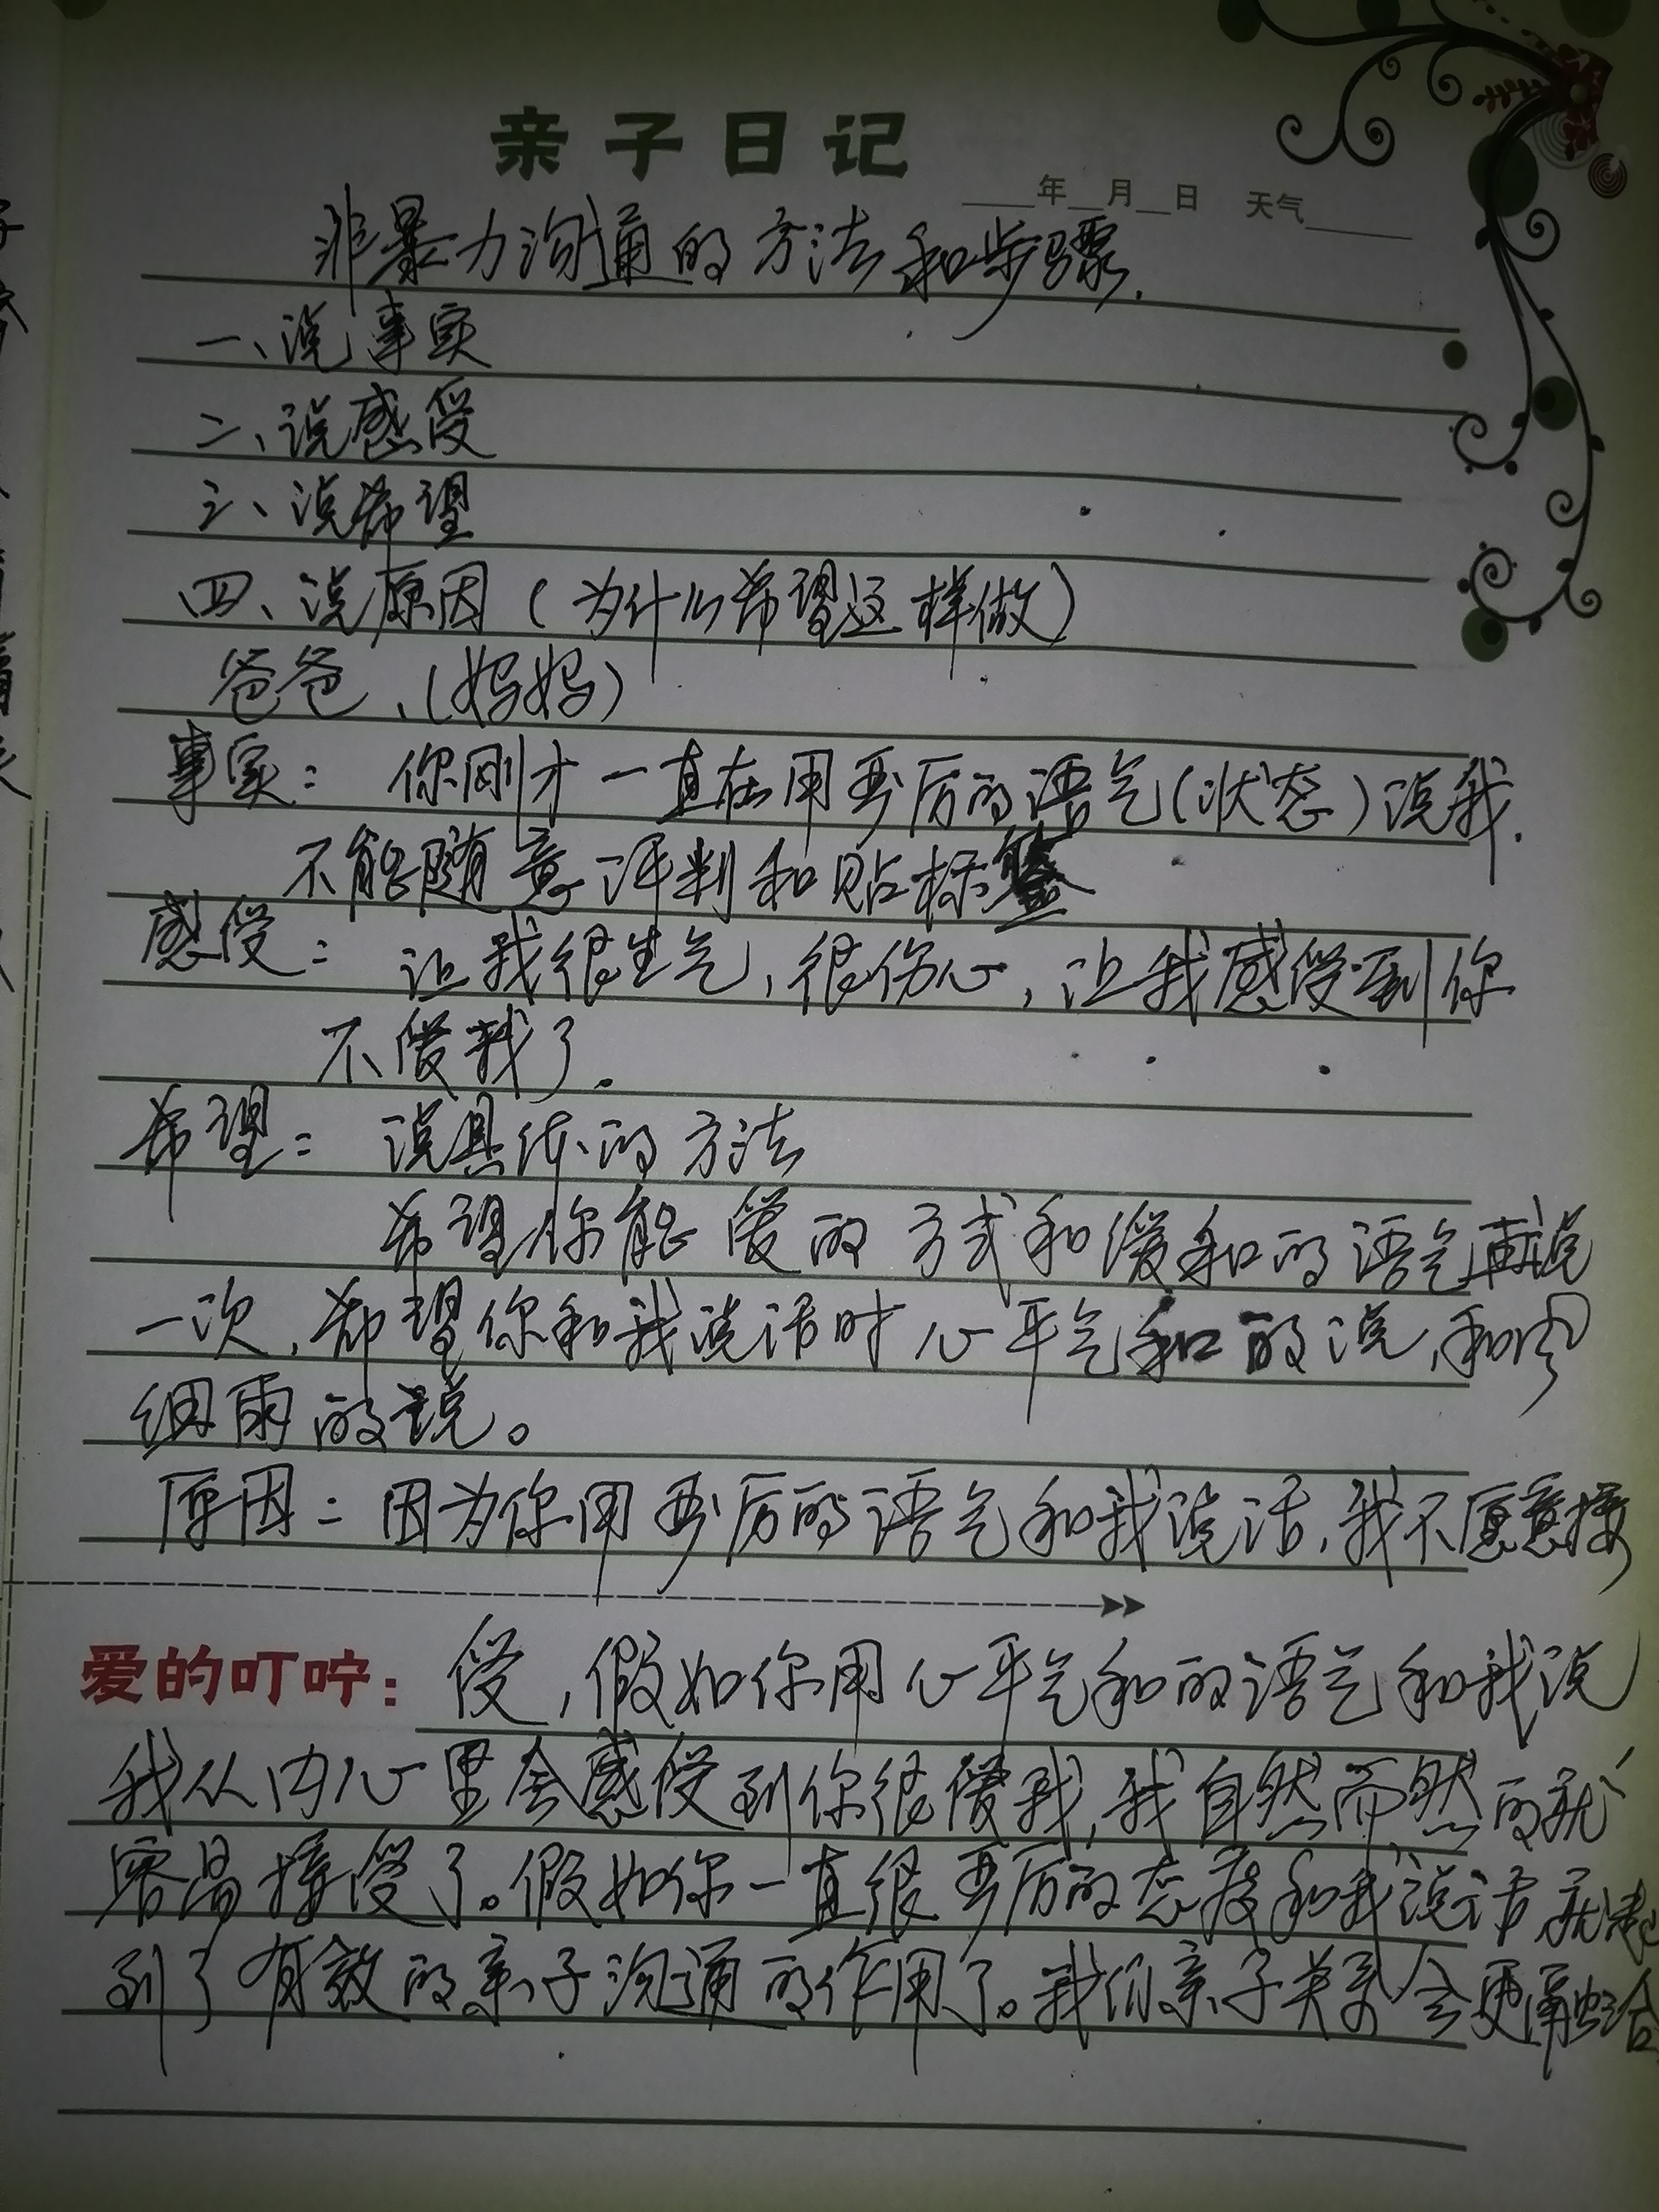 亲子日记
年 月 日 天气
非暴力沟通的方法和步骤.
一、说事实
二、说感受
三、说希望
四、说原因(为什么希望这样做)
爸爸、(妈妈)
事实: 你刚才一直在用严厉的语气(状态)说我.
不能随意评判和贴标签
感受: 让我很生气,很伤心,让我感受到你
不爱我了.
希望: 说具体的方法
希望你能爱的方式和缓和的语气再说
一次,希望你和我说话时心平气和的说,和风
细雨的说。
原因: 因为你用严厉的语气和我说话,我不愿意接
爱的叮咛: 受,假如你用心平气和的语气和我说
我从内心里会感受到你很爱我,我自然而然的就
容易接受了。假如你一直很严厉的态度和我说话就起
到了有效的亲子沟通的作用了。我们亲子关系会更融洽